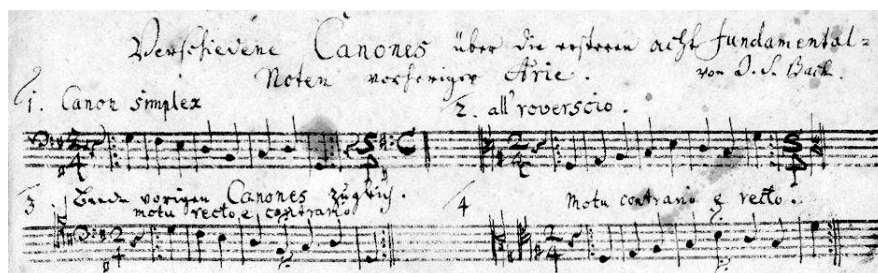 Verschiedene Canones über die ersteren acht Fundamental=
Noten voriger Arie. von J. S. Bach.
1. Canon simplex
2. all'roverscio.
3 Beede vorigen Canones zugleich.
motu recto e contrario
4 motu contrario e recto.